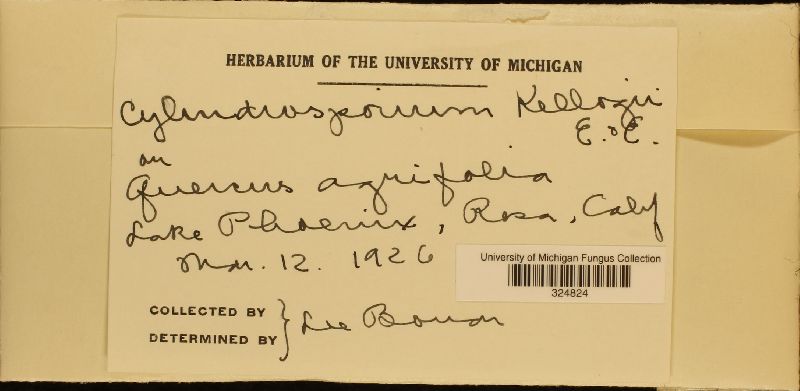 HERBARIUM OF THE UNIVERSITY OF MICHIGAN
Cylindrosporium Kelloggii
E. & E.
on
Quercus agrifolia
Lake Phoenix, Ross, Calif
Mar. 12. 1926
University of Michigan Fungus Collection
324824
COLLECTED BY
DETERMINED BY
Lee Bonar